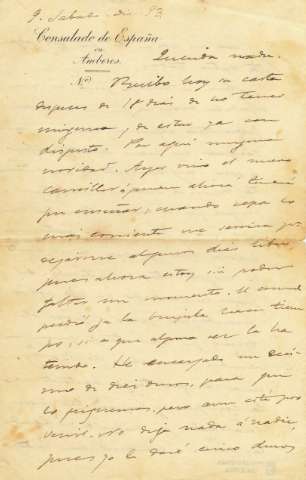 9. Sabado
Consulado de España
en
Amberes.
Nº Querida madre.
Recibo hoy su carta
despues de 18 dias de no tener
ninguna, y de estar ya con
disgusto. Por aqui ninguna
novedad. Ayer vino el nuevo
canciller á quien ahora tendré
que enseñar, cuando sepa lo
mas corriente me servirá para
dejarme algunos dias libre,
pues ahora estoy sin poder
faltar un momento. El consul
perdió ya la brujula hace tiem
po, si es que alguna vez la ha
tenido. He encargado un deci
mo de diez duros, para que
lo juguemos, pero aun esta por
venir. No diga nada á nadie,
pues yo le daré cinco duros